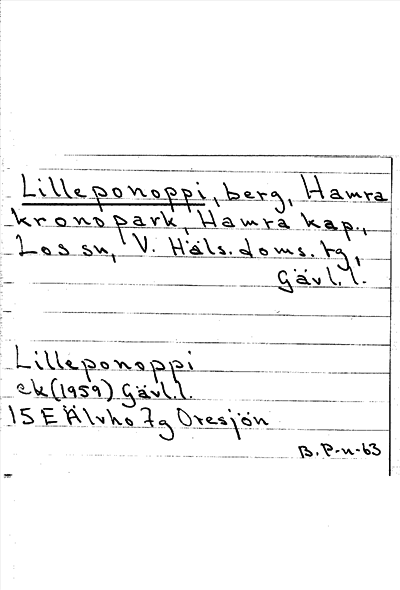 Lilleponoppi, berg, Hamra
kronopark, Hamra kap.,
Los sn, V. Häls. doms. tg,
Gävl. l.
Lilleponoppi
ek (1959) Gävl. l.
15 E Älvho 7g Oresjön
B. P-n-63